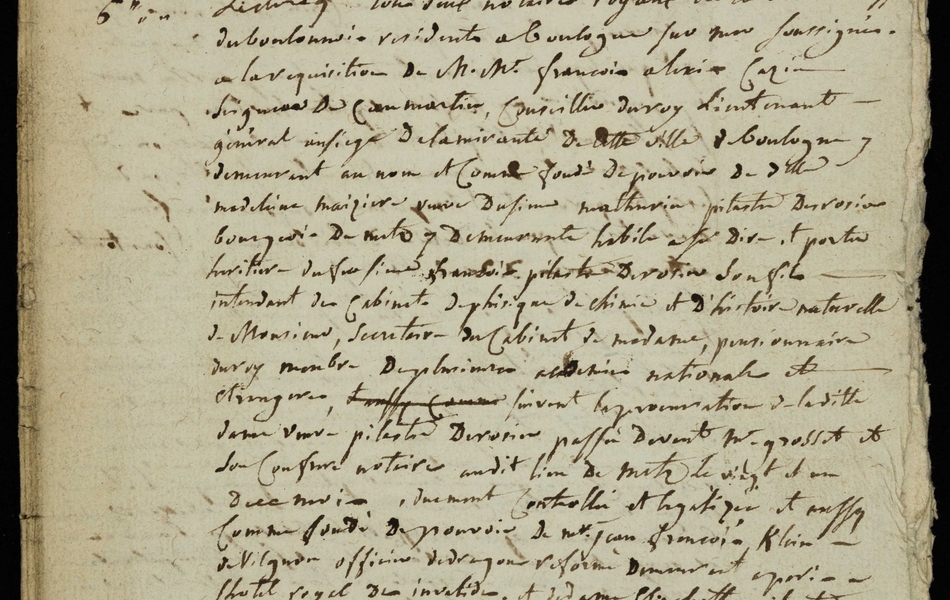 notaires royaux
du boulonnois residents a boulogne sur mer soussignés.
a la requisition de M. Me. françois alexis Cazin
seigneur De Caumartin, Conseiller du roy Lieutenant
général au siege De lamirauté De cette ville de boulogne y
demeurant au nom et Comme fondé De pouvoir De delle
madeleine maiziere veuve Du sieur mathurin pilastre Derosier
bourgeois De metz y Demeurante habile a se Dire et porter
heritiere du feu sieur françois pilastre Derosier Son fils
intendant des Cabinets de phisique de chimie et D'histoire naturelle
de Monsieur, Secretaire du Cabinet de madame, pensionnaire
du roy membre De plusieurs academies nationales et
etrangeres, suivant la procuration de laditte
dame veuve pilastre Derosier passée Devant Me. grosset et
Son Confrere notaires audit lieu De metz le vingt et un
De ce mois, duement Controllée et legalizée et aussy
Comme fondé De pouvoir de mr. jean françois Klein
officier de dragons reformé Demeurant a paris a
lhotel royal des invalides, et de dame